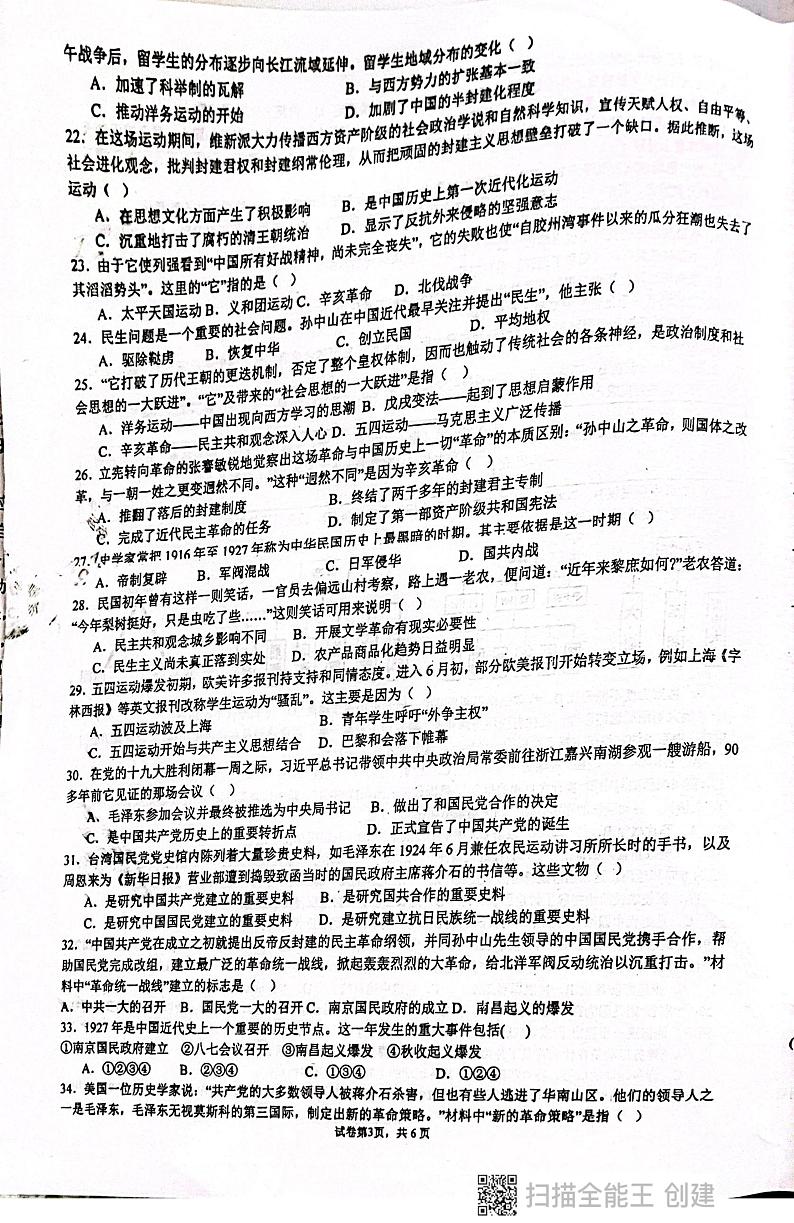 午战争后，留学生的分布逐步向长江流域延伸。留学生地域分布的变化（  ）
A．加速了科举制的瓦解  B．与西方势力的扩张基本一致
C．推动洋务运动的开始  D．加剧了中国的半封建化程度
22．在这场运动期间，维新派大力传播西方资产阶级的社会政治学说和自然科学知识，宣传天赋人权、自由平等、
社会进化观念，批判封建君权和封建纲常伦理，从而把顽固的封建主义思想壁垒打破了一个缺口。据此推断，这场
运动（  ）
A．在思想文化方面产生了积极影响  B．是中国历史上第一次近代化运动
C．沉重地打击了腐朽的清王朝统治  D．显示了反抗外来侵略的坚强意志
23．由于它使列强看到“中国所有好战精神，尚未完全丧失”，它的失败也使“自胶州湾事件以来的瓜分狂潮也失去了
其滔滔势头”。这里的“它”指的是（  ）
A．太平天国运动 B．义和团运动 C．辛亥革命  D．北伐战争
24．民生问题是一个重要的社会问题。孙中山在中国近代最早关注并提出“民生”，他主张（  ）
A．驱除鞑虏  B．恢复中华  C．创立民国  D．平均地权
25．“它打破了历代王朝的更迭机制，否定了整个皇权体制，因而也触动了传统社会的各条神经，是政治制度和社
会思想的一大跃进”。“它”及带来的“社会思想的一大跃进”是指（  ）
A．洋务运动——中国出现向西方学习的思潮 B．戊戌变法——起到了思想启蒙作用
C．辛亥革命——民主共和观念深入人心 D．五四运动——马克思主义广泛传播
26．立宪转向革命的张謇敏锐地觉察出这场革命与中国历史上一切“革命”的本质区别：“孙中山之革命，则国体之改
革，与一朝一姓之更变迥然不同。”这种“迥然不同”是因为辛亥革命（  ）
A．推翻了落后的封建制度  B．终结了两千多年的封建君主专制
C．完成了近代民主革命的任务  D．制定了第一部资产阶级共和国宪法
27．史学家常把1916年至1927年称为中华民国历史上最黑暗的时期。其主要依据是这一时期（  ）
A．帝制复辟  B．军阀混战  C．日军侵华  D．国共内战
28．民国初年曾有这样一则笑话，一官员去偏远山村考察，路上遇一老农，便问道：“近年来黎庶如何?”老农答道：
“今年梨树挺好，只是虫吃了些……”这则笑话可用来说明（  ）
A．民主共和观念城乡影响不同  B．开展文学革命有现实必要性
C．民生主义尚未真正落到实处  D．农产品商品化趋势日益明显
29．五四运动爆发初期，欧美许多报刊持支持和同情态度。进入6月初，部分欧美报刊开始转变立场，例如上海《字
林西报》等英文报刊改称学生运动为“骚乱”。这主要是因为（  ）
A．五四运动波及上海  B．青年学生呼吁“外争主权”
C．五四运动开始与共产主义思想结合  D．巴黎和会落下帷幕
30．在党的十九大胜利闭幕一周之际，习近平总书记带领中共中央政治局常委前往浙江嘉兴南湖参观一艘游船，90
多年前它见证的那场会议（  ）
A．毛泽东参加会议并最终被推选为中央局书记  B．做出了和国民党合作的决定
C．是中国共产党历史上的重要转折点  D．正式宣告了中国共产党的诞生
31．台湾国民党党史馆内陈列着大量珍贵史料，如毛泽东在1924年6月兼任农民运动讲习所所长时的手书，以及
周恩来为《新华日报》营业部遭到捣毁致函当时的国民政府主席蒋介石的书信等。这些文物（  ）
A．是研究中国共产党建立的重要史料  B．是研究国共合作的重要史料
C．是研究中国国民党建立的重要史料  D．是研究建立抗日民族统一战线的重要史料
32．“中国共产党在成立之初就提出反帝反封建的民主革命纲领，并同孙中山先生领导的中国国民党携手合作，帮
助国民党完成改组，建立最广泛的革命统一战线，掀起轰轰烈烈的大革命，给北洋军阀反动统治以沉重打击。”材
料中“革命统一战线”建立的标志是（  ）
A．中共一大的召开  B．国民党一大的召开 C．南京国民政府的成立 D．南昌起义的爆发
33．1927年是中国近代史上一个重要的历史节点。这一年发生的重大事件包括(  )
①南京国民政府建立  ②八七会议召开  ③南昌起义爆发  ④秋收起义爆发
A．①②③④  B．②③④  C．①③④  D．①②④
34．美国一位历史学家说：“共产党的大多数领导人被蒋介石杀害，但也有些人逃进了华南山区。他们的领导人之
一是毛泽东，毛泽东无视莫斯科的第三国际，制定出新的革命策略。”材料中“新的革命策略”是指（  ）
试卷第3页，共6页
扫描全能王 创建